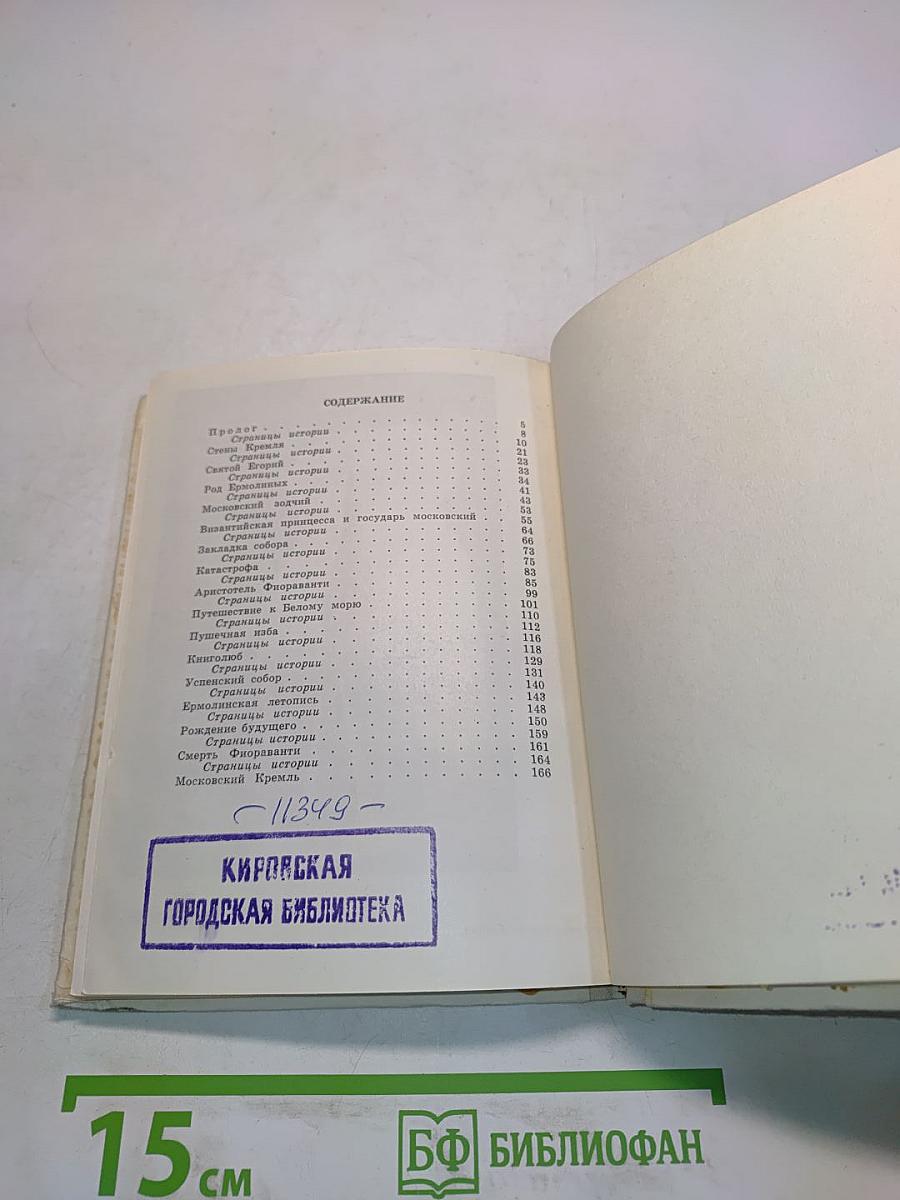 СОДЕРЖАНИЕ
Пролог . . . . . . . . . . . . . 5
Страницы истории . . . . . . . . . 8
Стены Кремля . . . . . . . . . . . 10
Страницы истории . . . . . . . . . 21
Святой Егорий . . . . . . . . . . . 23
Страницы истории . . . . . . . . . 33
Род Ермолиных . . . . . . . . . . . 34
Страницы истории . . . . . . . . . 41
Московский зодчий . . . . . . . . . 43
Страницы истории . . . . . . . . . 53
Византийская принцесса и государь московский . . 55
Страницы истории . . . . . . . . . 64
Закладка собора . . . . . . . . . . 66
Страницы истории . . . . . . . . . 73
Катастрофа . . . . . . . . . . . . 75
Страницы истории . . . . . . . . . 83
Аристотель Фиораванти . . . . . . . . 85
Страницы истории . . . . . . . . . 99
Путешествие к Белому морю . . . . . . . 101
Страницы истории . . . . . . . . . 110
Пушечная изба . . . . . . . . . . . 112
Страницы истории . . . . . . . . . 116
Книголюб . . . . . . . . . . . . 118
Страницы истории . . . . . . . . . 129
Успенский собор . . . . . . . . . . 131
Страницы истории . . . . . . . . . 140
Ермолинская летопись . . . . . . . . 143
Страницы истории . . . . . . . . . 148
Рождение будущего . . . . . . . . . 150
Страницы истории . . . . . . . . . 159
Смерть Фиораванти . . . . . . . . . 161
Страницы истории . . . . . . . . . 164
Московский Кремль . . . . . . . . . 166
– 11349 –
КИРОВСКАЯ
ГОРОДСКАЯ БИБЛИОТЕКА
15 см
БФ БИБЛИОФАН